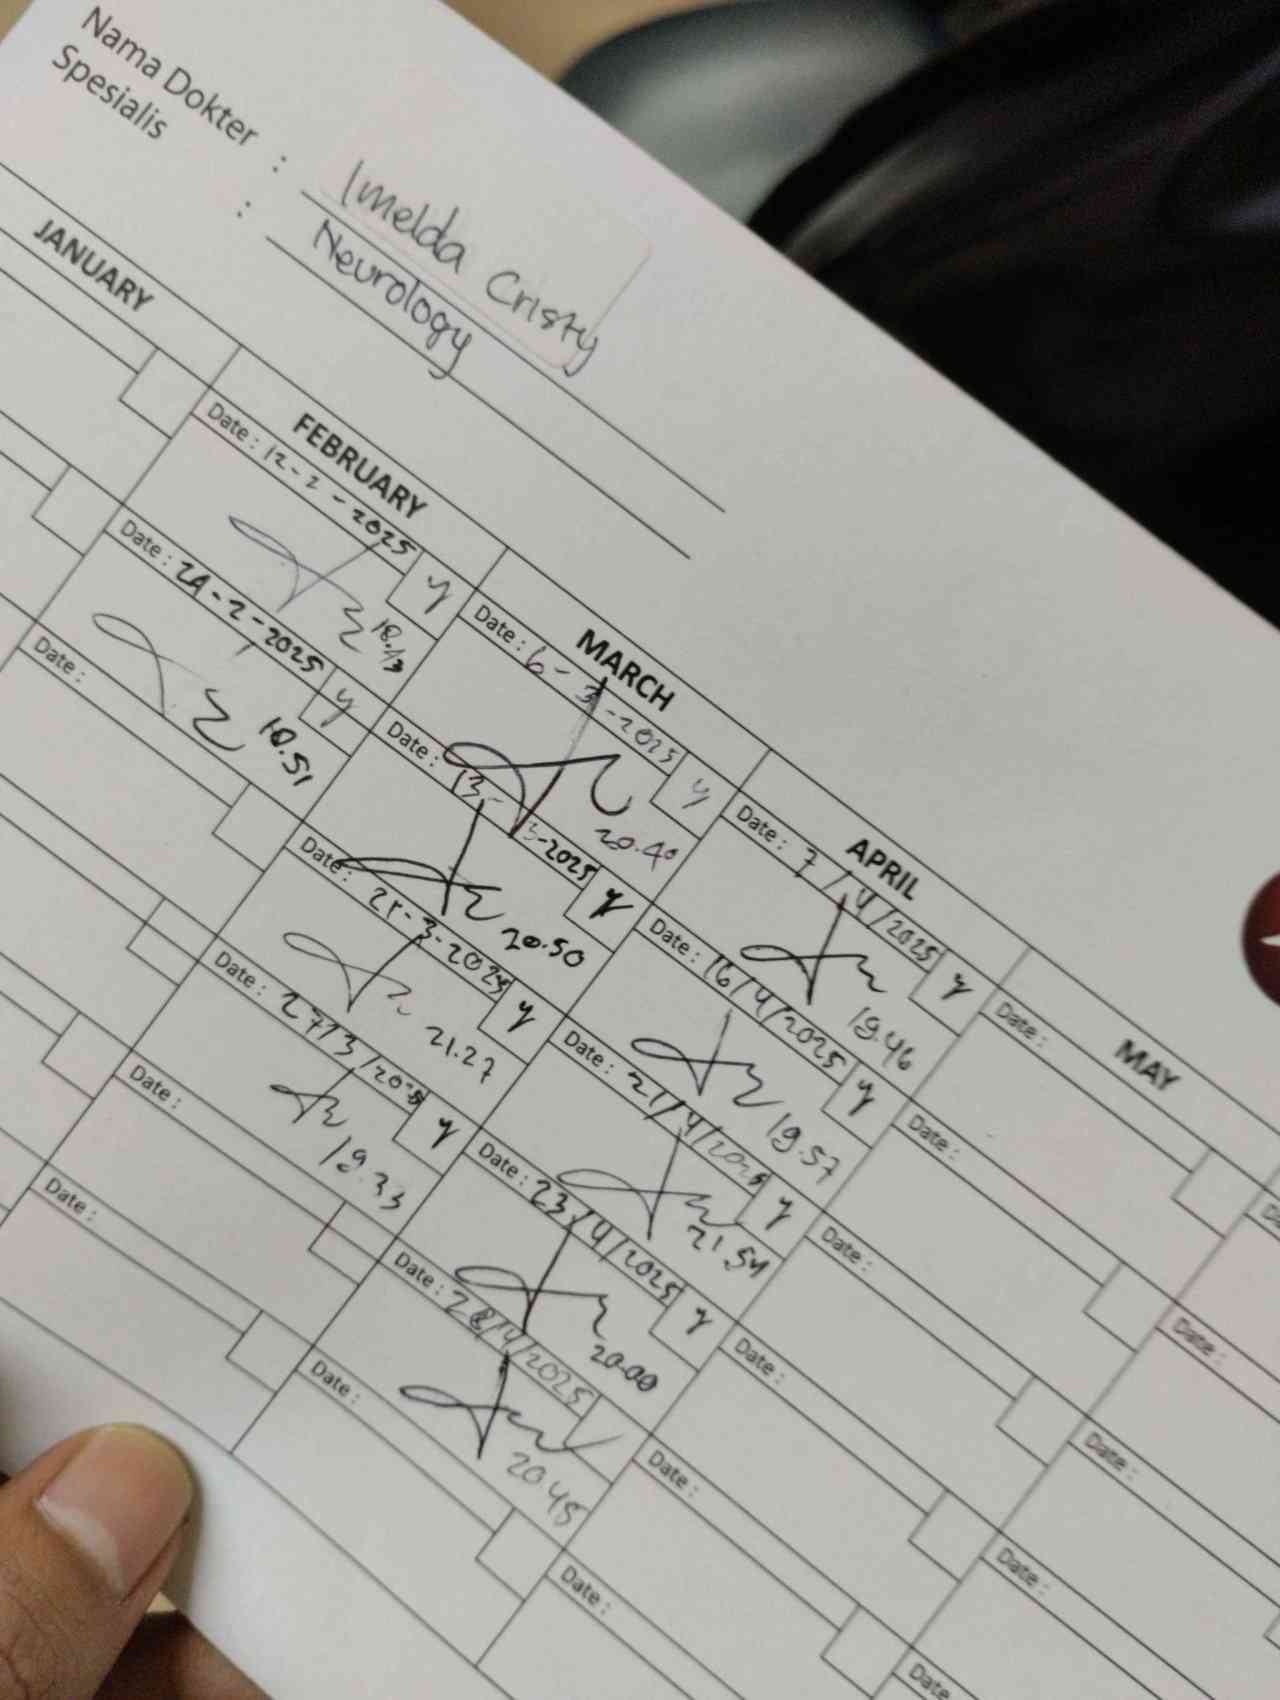 Nama Dokter : Imelda Cristy
Spesialis : Neurology
JANUARY
FEBRUARY
Date : 12-2-2025 y
18.13
Date : 24-2-2025 y
18.51
Date :
MARCH
Date : 6-3-2025 y
20.40
Date : 13-3-2025 y
20.50
Date : 21-3-2025 y
21.27
Date : 27/3/2025 y
19.33
Date :
Date :
APRIL
Date : 7/4/2025 y
19.46
Date : 16/4/2025 y
19.57
Date : 21/4/2025 y
21.54
Date : 23/4/2025 y
20.00
Date : 28/4/2025
20.45
Date :
MAY
Date :
Date :
Date :
Date :
Date :
Date :
Date :
Date :
Date :
Date